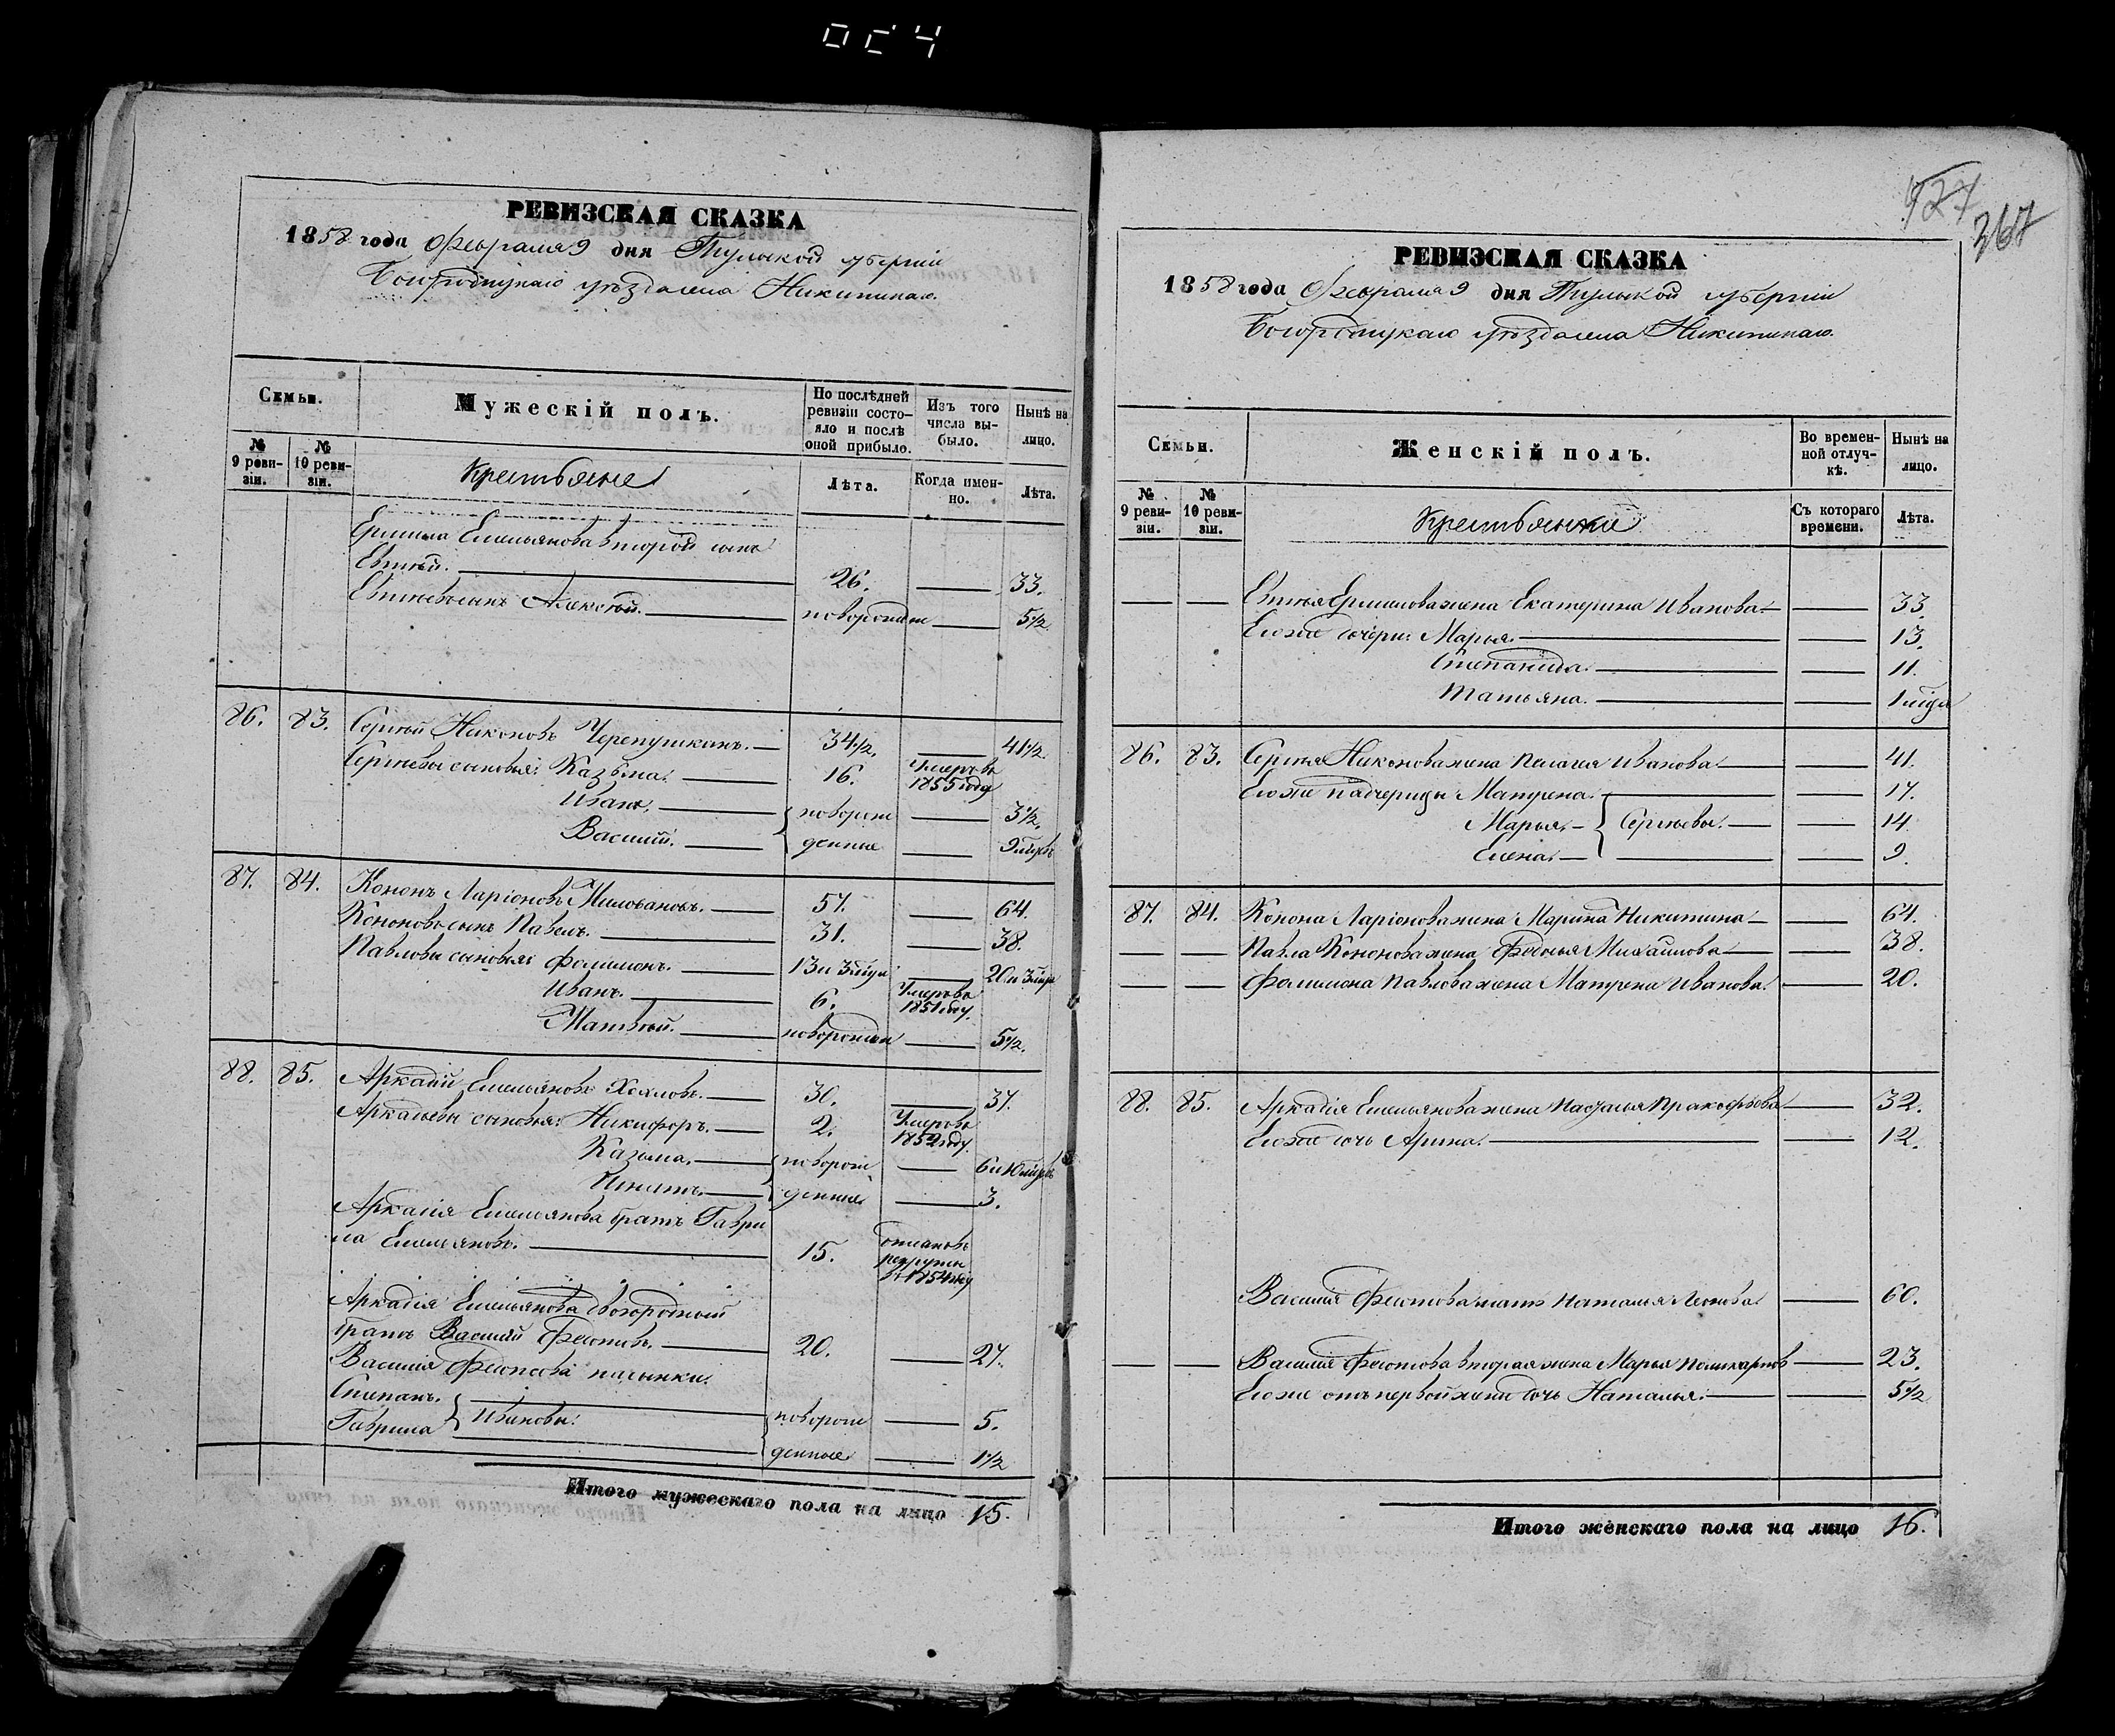 РЕВИЗСКАЯ СКАЗКА
1858 года Февраля 9 дня Тульской губернии
Богородицкаго уѣзда села Никитинаго.
Семьи.
Мужескій полъ.
По послѣдней ревизіи состояло и послѣ оной прибыло.
Изъ того числа выбыло.
Нынѣ на лицо.
№ 9 ревизіи.
№ 10 ревизіи.
Крестьяне
Лѣта.
Когда именно.
Лѣта.
Ермила Емельянова второй сынъ
Евтѣй. 26. 33.
Евтѣевъ сынъ Алексѣй. новорожден 5½
86. 83. Сергѣй Никоновъ Черепушкинъ. 34½. 41½
Сергѣевы сыновья: Казьма. 16. Умеръ въ 1855 году
Иванъ. новорож 3½.
Василій. денные 9 мѣсяцъ
87. 84. Кононъ Ларіоновъ Миловановъ. 57. 64.
Кононовъ сынъ Павелъ. 31. 38.
Павловы сыновья: Филимонъ. 13 и 3 мѣсяц 20 и 3 мѣсяц
Иванъ. 6. Умеръ въ 1851 году.
Матвѣй. новорожден 5½.
88. 85. Аркадій Емельяновъ Хохловъ. 30. 37.
Аркадьевы сыновья: Никифоръ. 2. Умеръ въ 1852 году.
Казьма. новорож 6 и 10 мѣсяцъ
Игнатъ. денные 3.
Аркадія Емельянова братъ Гаври
ла Емельяновъ. 15. отданъ въ рекруты въ 1854 году
Аркадія Емельянова двоюродный
братъ Василій Феоктистовъ. 20. 27.
Василія Феоктистова пасынки:
Степанъ. новорож 5.
Гаврила Ивановы. денные 1½
Итого мужескаго пола на лицо 15.
367
РЕВИЗСКАЯ СКАЗКА
1858 года Февраля 9 дня Тульской губерніи
Богородицкаго уѣзда села Никитинаго.
Семьи.
Женскій полъ.
Во временной отлучкѣ.
Нынѣ на лицо.
№ 9 ревизіи.
№ 10 ревизіи.
Крестьянки
Съ котораго времени.
Лѣта.
Евтѣя Ермилова жена Екатерина Иванова 33
Его же дочери: Марья. 13.
Степанида. 11.
Татьяна. 1 мѣсяц
86. 83. Сергѣя Никонова жена Пелагея Иванова 41.
Его же падчерицы Матрена. 17.
Марья. Сергѣевы. 14.
Елена. 9.
87. 84. Конона Ларіонова жена Марина Никитина 64.
Павла Кононова жена Федосья Михайлова 38.
Филимона Павлова жена Матрена Иванова. 20.
88. 85. Аркадія Емельянова жена Настасья Пракофьева 32.
Его же дочь Арина. 12.
Василія Феоктистова мать Наталья Леонова. 60.
Василія Феоктистова вторая жена Марья Поликарпов 23.
Его же отъ первой жены дочь Наталья. 5½
Итого женскаго пола на лицо 16.